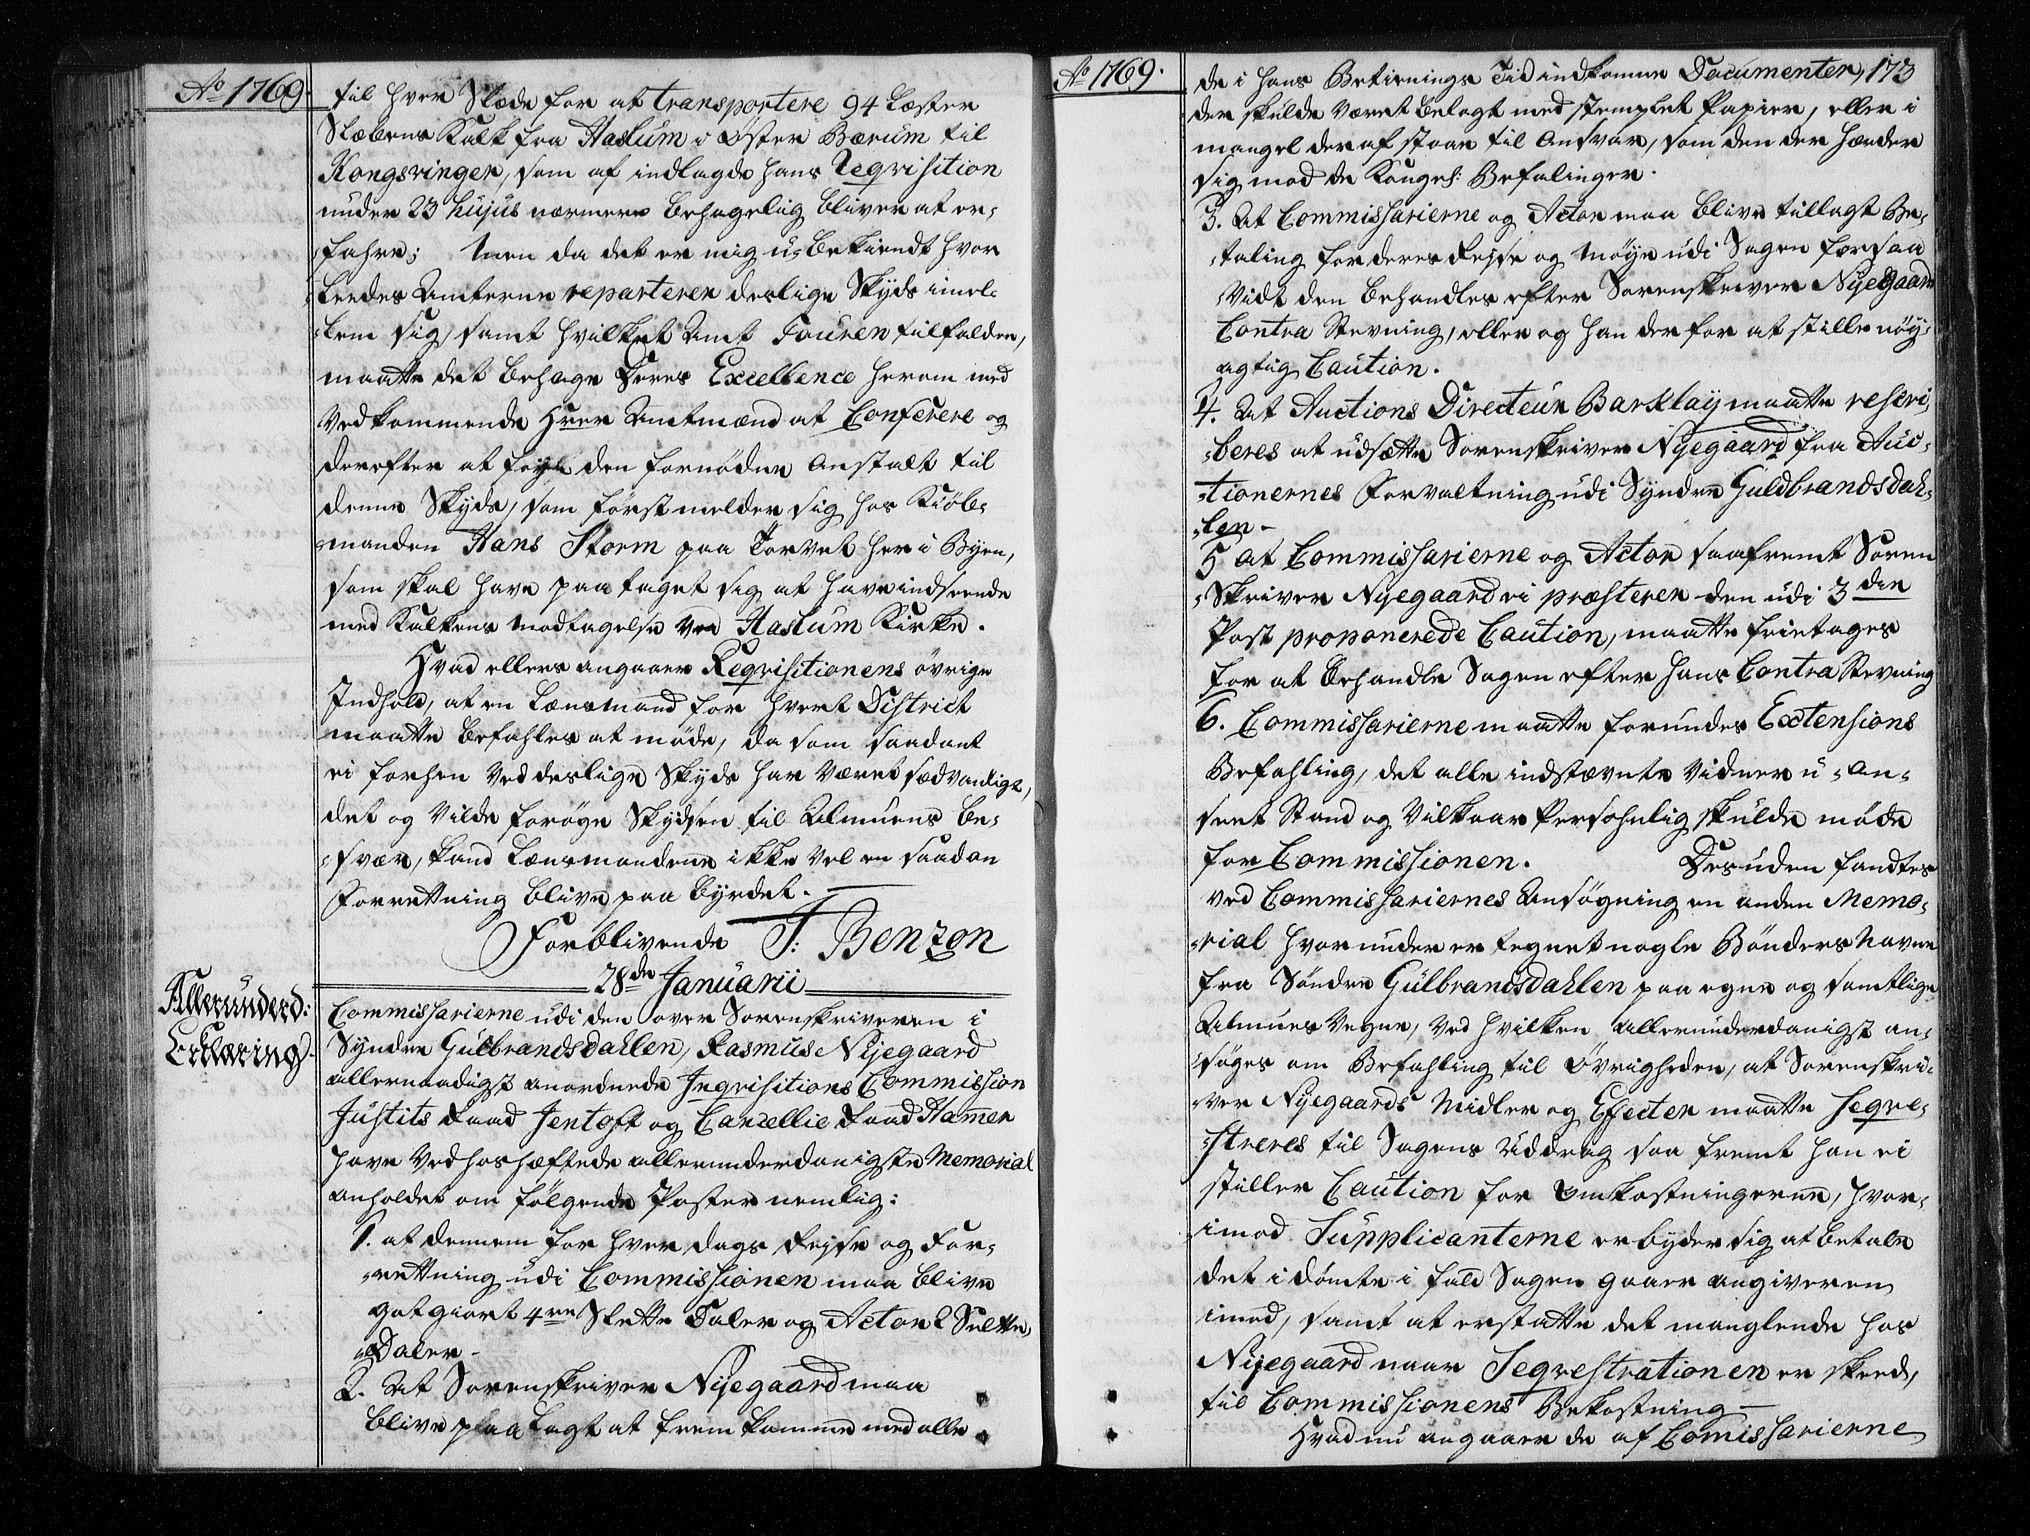 Ao 1769.
til hver Slæde for at transportere 94 Læster
Slæbens Kalk fra Haslum i Øster Bærum til
Kongsvinger, som af indlagde hans Reqvisition
under 23 hujus nærmere behagelig bliver at er-
fahre; Men da det er mig u-bekiendt hvor
ledes Amterne reparterer deslige Skyds imel-
lem sig, samt hvilket Amt Touren tilfalder,
maatte det behage Deres Excellence herom med
Vedkommende Hrer Amtmænd at Conferere og
derefter at føye den fornødne Anstalt til
denne Skyds, som først melder sig hos Kiøb-
manden Hans Storm paa Torvet her i Byen,
som skal have paataget sig at have indseende
med Kalkens Modtagelse ved Haslum Kirke.
Hvad ellers angaaer Reqvisitionens øvrige
Indhold, at en Lænsmand for hvert District
maatte befahles at møde, da som saadant
ei forhen ved deslige Skyds har været sædvanligt,
det og vilde forøge Skydsen til Almuens Be-
svær, kand Lænsmændene ikke vel en saadan
Forrettning blive paa byrdet.
Forblivende J: Benzon
28de Januarii
Allerunderd:
Erklæring
Commissarierne udi den over Sorenskriveren i
Syndre Gulbrandsdahlen, Rasmus Nyegaard
allernaadigst anordnede Inqvisitions Commission
Justits Raad Jentoft og Cancellie Raad Hamer
have ved hoshæftede allerunderdanigste Memorial
anholdet om følgende Poster nemlig:
1. at dennem for hver dags Rejse og For-
rettning udi Commissionen maa blive
godgiort 4re Slette Daler og Actor 2 Slette
Daler -
2. At Sorenskriver Nyegaard maa
blive paalagt at fremkomme med alle
Ao 1769.
173
de i hans Betienings Tid indkomne Documenter,
der skulde været belagt med stemplet Papier, eller i
mangel deraf staae til Ansvar, som den der hæder
sig mod de Konges: Befalinger.
3. At Commissarierne og Actor maa blive tillagt Be-
taling for deres Rejse og Møye udi Sagen forsaa
vidt den behandles efter Sorenskriver Nyegaards
Contra Stevning, eller og han derfor at stille nøy-
agtig Caution.
4. At Auctions Directeur Barklay maatte rescri-
beres at udsætte Sorenskriver Nyegaard fra Auc-
tionernes Forvaltning udi Syndre Guldbrandsdah-
len -
5 at Commissarierne og Actor saafremt Soren
Skriver Nyegaard ei præsterer den udi 3die
Post proponerede Caution, maatte frietages
for at behandle Sagen efter hans Contra Stevning
6. Commissarierne maatte forundes Extensions
Befahling, det alle indstævnte Vidner u-an-
seet Stand og Vilkaar Persohnlig skulde møde
for Commissionen. Desuden fandtes
ved Commissariernes Ansøgning en anden Memo-
rial hvorunder er tegnet nogle Bønders Navne
fra Søndre Gulbrandsdahlen paa egne og samtlige
Almues Vegne, ved hvilken allerunderdanigst an-
søges om Befahling til Øvrigheden, at Sorenskri-
ver Nyegaards Midler og Efecter maatte Seqve-
streres til Sagens Uddrag saa fremt han ei
stiller Caution for Omkostningerne, hvor-
imod Supplicanterne erbyder sig at betale
det idømte i fald Sagen gaaer angiveren
imod, samt at erstatte det manglende hos
Nyegaard naar Seqvestrationen er skeed,
til Commissionens Bekostning -
Hvad nu angaaer de af Comissarierne